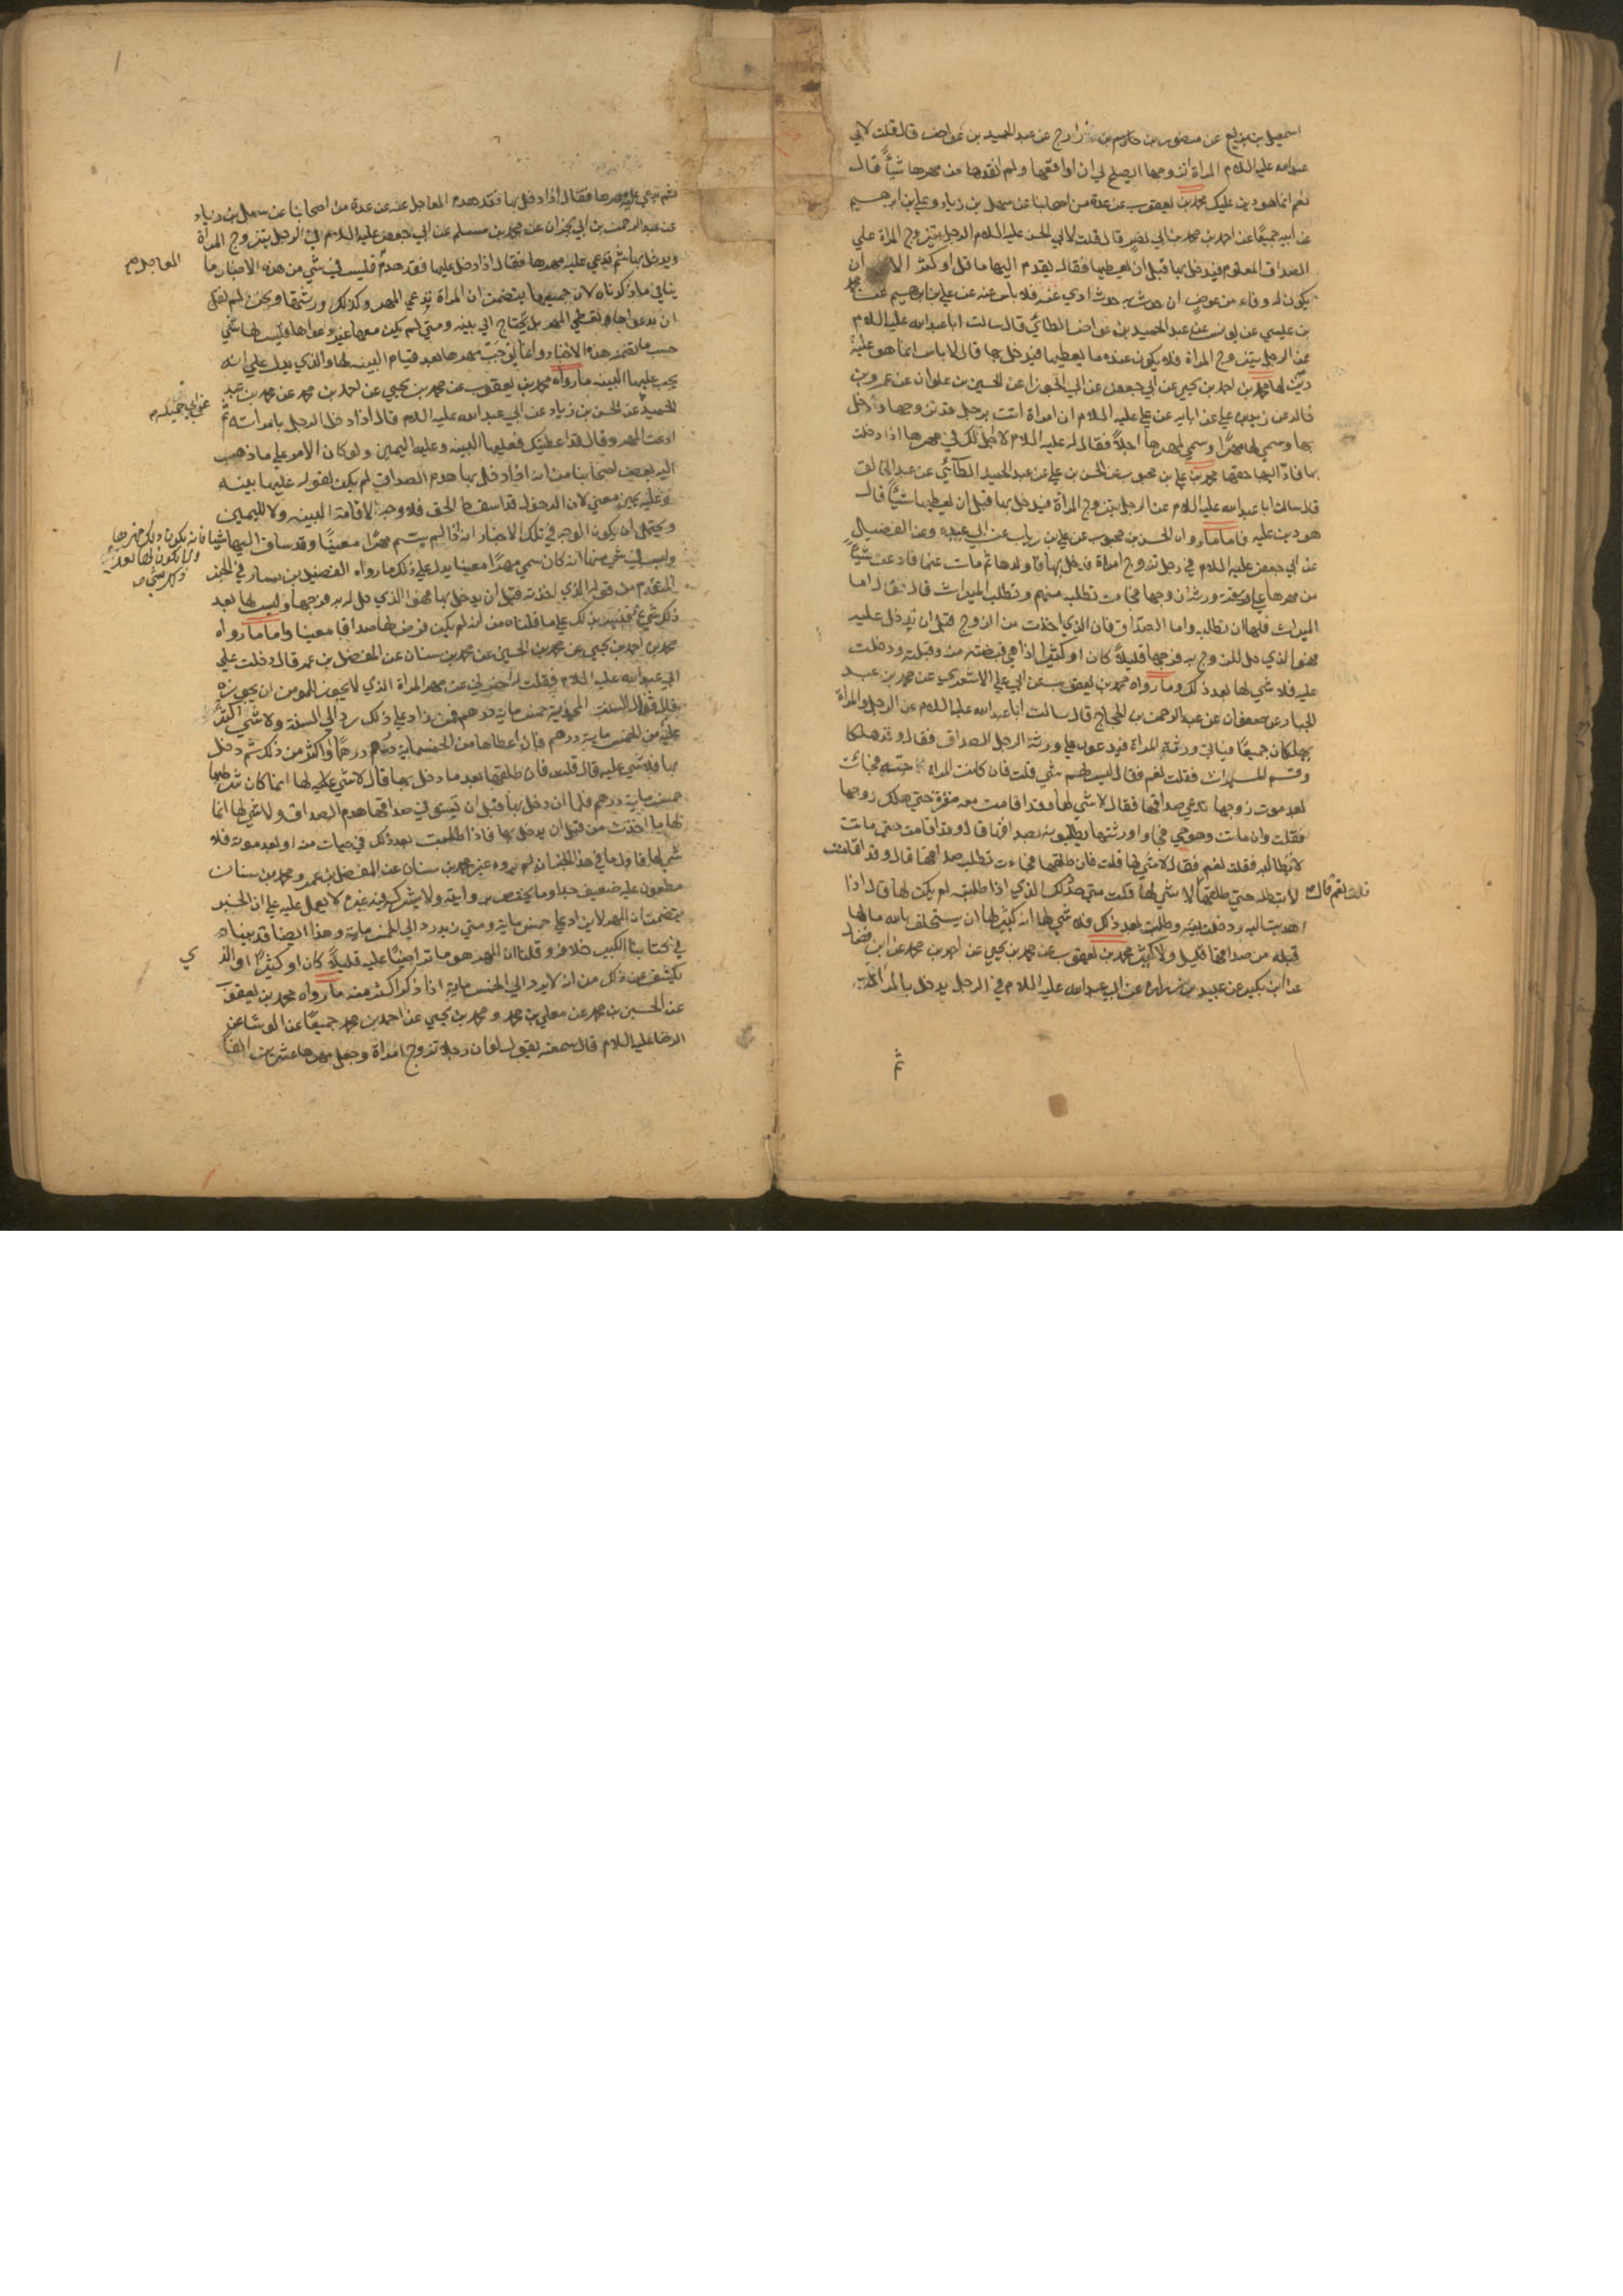 اسمعيل بن بزيع عن منصور بن حازم بن زارج عن عبد الحميد بن عواض قال قلت لابي
عبدالله عليه السلام المراة اتزوجها ايصلح لي ان اواقعها ولم انقدها من مهرها شيئا قال
نعم انما هو دين عليك محمد بن يعقوب عن عدة من اصحابنا عن سهل بن زياد وعلي بن ابرهيم
عن ابيه جميعا عن احمد بن محمد بن ابي نصر قال قلت لابي الحسن عليه السلام الرجل يتزوج المراة علي
الصداق المعلوم فيدخل بها قبل ان يعطيها فقال يقدم اليها ما قل او كثر الا ان
يكون له وفاء من عرض ان حدث به حدث ادي عنه فلا باس عنه عن علي بن ابرهيم عن محمد
بن عيسي عن يونس عن عبد الحميد بن عواض الطائي قال سالت ابا عبدالله عليه السلام
عن الرجل يتزوج المراة فلا يكون عنده ما يعطيها فيدخل بها قال لا باس انما هو عليه
دين لها محمد بن احمد بن يحيي عن ابي جعفر عن ابي الجوزا عن الحسين بن علوان عن عمرو بن
خالد عن زيد بن علي عن ابايه عن علي عليه السلام ان امراة اتت برجل قد تزوجها ودخل
بها وسمي لها مهرا وسمي لمهرها اجلا فقال له عليه السلام لا اجل لك في مهرها اذا دخلت
بها فاد اليها حقها محمد بن علي بن محبوب عن الحسن بن علي عن عبد الحميد الطائي عن عبد الخالق
قال سالت ابا عبدالله عليه السلام عن الرجل يتزوج المراة فيدخل بها قبل ان يعطيها شيئا قال
هو دين عليه فاما ما رواه الحسن بن محبوب عن علي بن رياب عن ابي عبيده وعن الفضيل
عن ابي جعفر عليه السلام في رجل تزوج امراة فدخل بها فاولدها ثم مات عنها فادعت شيئا
من مهرها علي ورثة زوجها فجاءت تطلبه منهم وتطلب الميراث قال فقال اما
الميراث فلها ان تطلبه واما الصداق فان الذي اخذت من الزوج قبل ان تدخل عليه
فهو الذي حل للزوج به فرجها قليلا كان او كثيرا اذا هي قبضته منه وقبلته ودخلت
عليه فلا شي لها بعد ذلك وما رواه محمد بن يعقوب عن ابي علي الاشعري عن محمد بن عبد
الجبار عن صفوان عن عبد الرحمن بن الحجاج قال سالت ابا عبدالله عليه السلام عن الرجل والمراة
يهلكان جميعا فياتي ورثة المراة فيدعون علي ورثة الرجل الصداق فقال وقد هلكا
وقسم الميراث فقلت نعم فقال ليس لهم شي قلت فان كانت المراة حية فجائت
بعد موت زوجها تدعي صداقها فقال لا شي لها وقد اقامت معه مقرة حتي هلك زوجها
فقلت وان ماتت وهو حي فجاوا ورثتها يطالبونه بصداقها قال وقد اقامت حتي ماتت
لا تطالبه فقلت نعم فقال لا شي لها قلت فان طلقها فجاءت تطلب صداقها قال وقد اقامت
لا تطالبه حتي طلقها لا شي لها قلت متي حد ذلك الذي اذا طلبته لم يكن لها قال اذا
قلت نعم قال
اهديت اليه ودخلت بيته وطلبت بعد ذلك فلا شي لها انه كثير لها ان يستحلف بالله ما لها
قبله من صداقها قليل ولا كثير محمد بن يعقوب عن محمد بن يحيي عن احمد بن محمد عن ابن فضال
عن ابن بكير عن عبيد بن زراره عن ابي عبدالله عليه السلام في الرجل يدخل بالمراة
ثم
ثم تدعي عليه مهرها فقال اذا دخل بها فقد هدم العاجل عنه عن عدة من اصحابنا عن سهل بن زياد
عن عبد الرحمن بن ابي نجران عن محمد بن مسلم عن ابي جعفر عليه السلام في الرجل يتزوج المراة
ويدخل بها ثم تدعي عليه مهرها فقال اذا دخل عليها فقد هدم فليس في شي من هذه الاخبار ما
العاجل
ينافي ما ذكرناه لان جميعها يتضمن ان المراة تدعي المهر وكذلك ورثتها ونحن لم نقل
ان بدعواها تعطي المهر بل تحتاج الي بينه ومتي لم يكن معها غير دعواها فليس لها شي
حسب ما تضمنه هذه الاخبار وانما يوجب مهرها بعد قيام البينه لها والذي يدل علي انه
يجب عليها البينه ما رواه محمد بن يعقوب عن محمد بن يحيي عن احمد بن محمد عن محمد بن عبد
عن ابي جميله
الحميد عن الحسن بن زياد عن ابي عبدالله عليه السلام قال اذا دخل الرجل بامراته ثم
ادعت المهر وقال قد اعطيتك فعليها البينه وعليه اليمين ولو كان الامر علي ما ذهب
اليه بعض اصحابنا من انه اذا دخل بها هدم الصداق لم يكن لقوله عليها بينه
وعليه يمين معني لان الدخول قد اسقط الحق فلا وجه لاقامة البينه ولا لليمين
ويحتمل ان يكون الوجه في تلك الاخبار انه اذا لم يسم مهرا معينا وقد ساق اليها شيا فانه يكون ذلك مهرها
ولا يكون لها بعد
ذلك شي
وليس في شي منها انه كان سمي مهرا معينا يدل علي ذلك ما رواه الفضيل بن يسار في الخبر
المتقدم من قوله الذي اخذته قبل ان يدخل بها فهو الذي حل له به فرجها وليس لها بعد
ذلك شي فنبه بذلك علي ما قلناه من انه لم يكن فرض لها صداقا معينا واما ما رواه
محمد بن احمد بن يحيي عن محمد بن الحسين عن محمد بن سنان عن المفضل بن عمر قال دخلت علي
ابي عبدالله عليه السلام فقلت له اخبرني عن مهر المراة الذي لا يجوز للمومن ان يجوزه
قال فقال السنة المحمدية خمس ماية درهم فمن زاد علي ذلك رد الي السنة ولا شي اكثر
عليه من الخمس ماية درهم فان اعطاها من الخمسماية درهم درهما او اكثر من ذلك ثم دخل
بها فلا شي عليه قال قلت فان طلقها بعد ما دخل بها قال لا شي عليه لها انما كان شرطها
خمس ماية درهم فلما ان دخل بها قبل ان تستوفي صداقها هدم الصداق ولا شي لها انما
لها ما اخذت من قبل ان يدخل بها فاذا طلبت بعد ذلك في حيات منه او بعد موته فلا
شي لها فاول ما في هذا الخبر ان لم يروه غير محمد بن سنان عن المفضل بن عمر ومحمد بن سنان
مطعون عليه ضعيف جدا وما يختص بروايته ولا يشركه فيه غيره لا يعمل عليه علي ان الخبر
يتضمن ان المهر لا يزاد علي خمس ماية ومتي زيد رد الي الخمس ماية وهذا ايضا قد بيناه
في كتابنا الكبير خلافه وقلنا ان المهر هو ما تراضيا عليه قليلا كان او كثيرا والذ
ي
يكشف عن ذلك من انه لا يرد الي الخمس ماية اذا ذكر اكثر منه ما رواه محمد بن يعقوب
عن الحسين بن محمد عن معلي بن محمد ومحمد بن يحيي عن احمد بن محمد جميعا عن الوشا عن
الرضا عليه السلام قال سمعته يقول لو ان رجلا تزوج امراة وجعل مهرها عشرين الفا